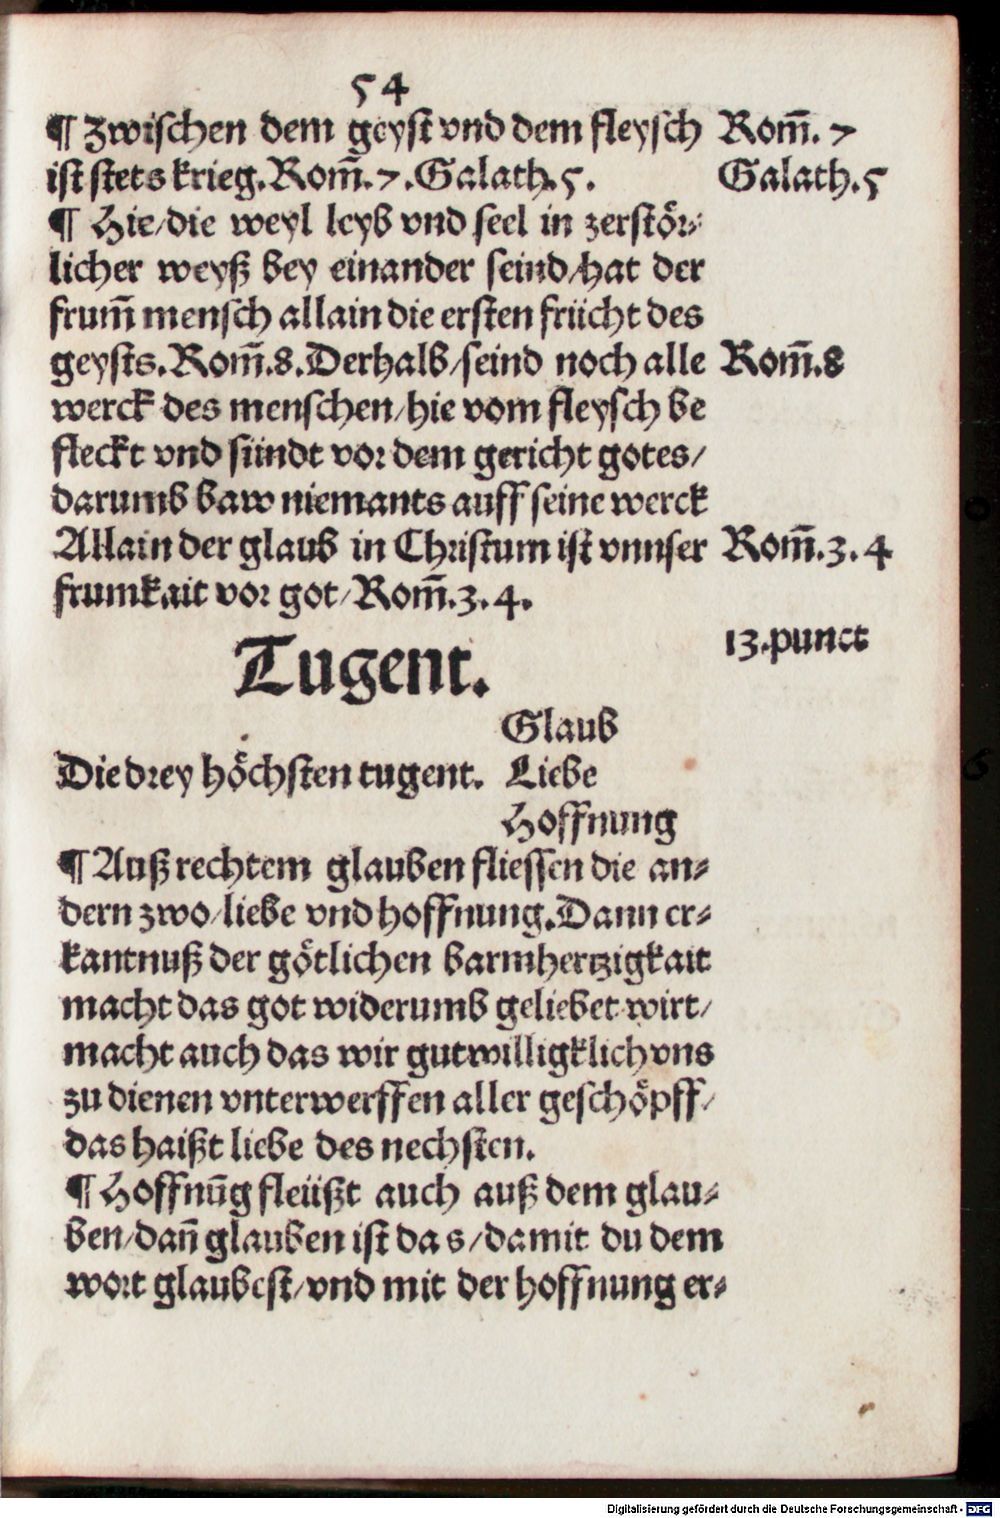 54
¶ Zwischen dem geyst vnd dem fleysch
ist stets krieg. Rom̃.7. Galath.5.
Rom̃. 7
Galath.5
¶ Hie/die weyl leyb vnd seel in zerstör⸗
licher weyß bey einander seind/hat der
frum̃ mensch allain die ersten frücht des
geysts. Rom̃.8. Derhalb/seind noch alle
Rom̃.8
werck des menschen/hie vom fleysch be
fleckt vnd sündt vor dem gericht gotes/
darumb baw niemants auff seine werck
Allain der glaub in Christum ist vnnser
frumkait vor got/Rom̃.3.4.
Rom̃.3.4
Tugent.
13.punct
Glaub
Die drey höchsten tugent. Liebe
Hoffnung
¶ Auß rechtem glauben fliessen die an⸗
dern zwo/liebe vnd hoffnung. Dann er⸗
kantnuß der götlichen barmhertzigkait
macht das got widerumb geliebet wirt/
macht auch das wir gutwilligklich vns
zu dienen vnterwerffen aller geschöpff/
das haißt liebe des nechsten.
¶ Hoffnūg fleüßt auch auß dem glau⸗
ben/dañ glauben ist das/damit du dem
wort glaubest/vnd mit der hoffnung er⸗
Digitalisierung gefördert durch die Deutsche Forschungsgemeinschaft - DFG